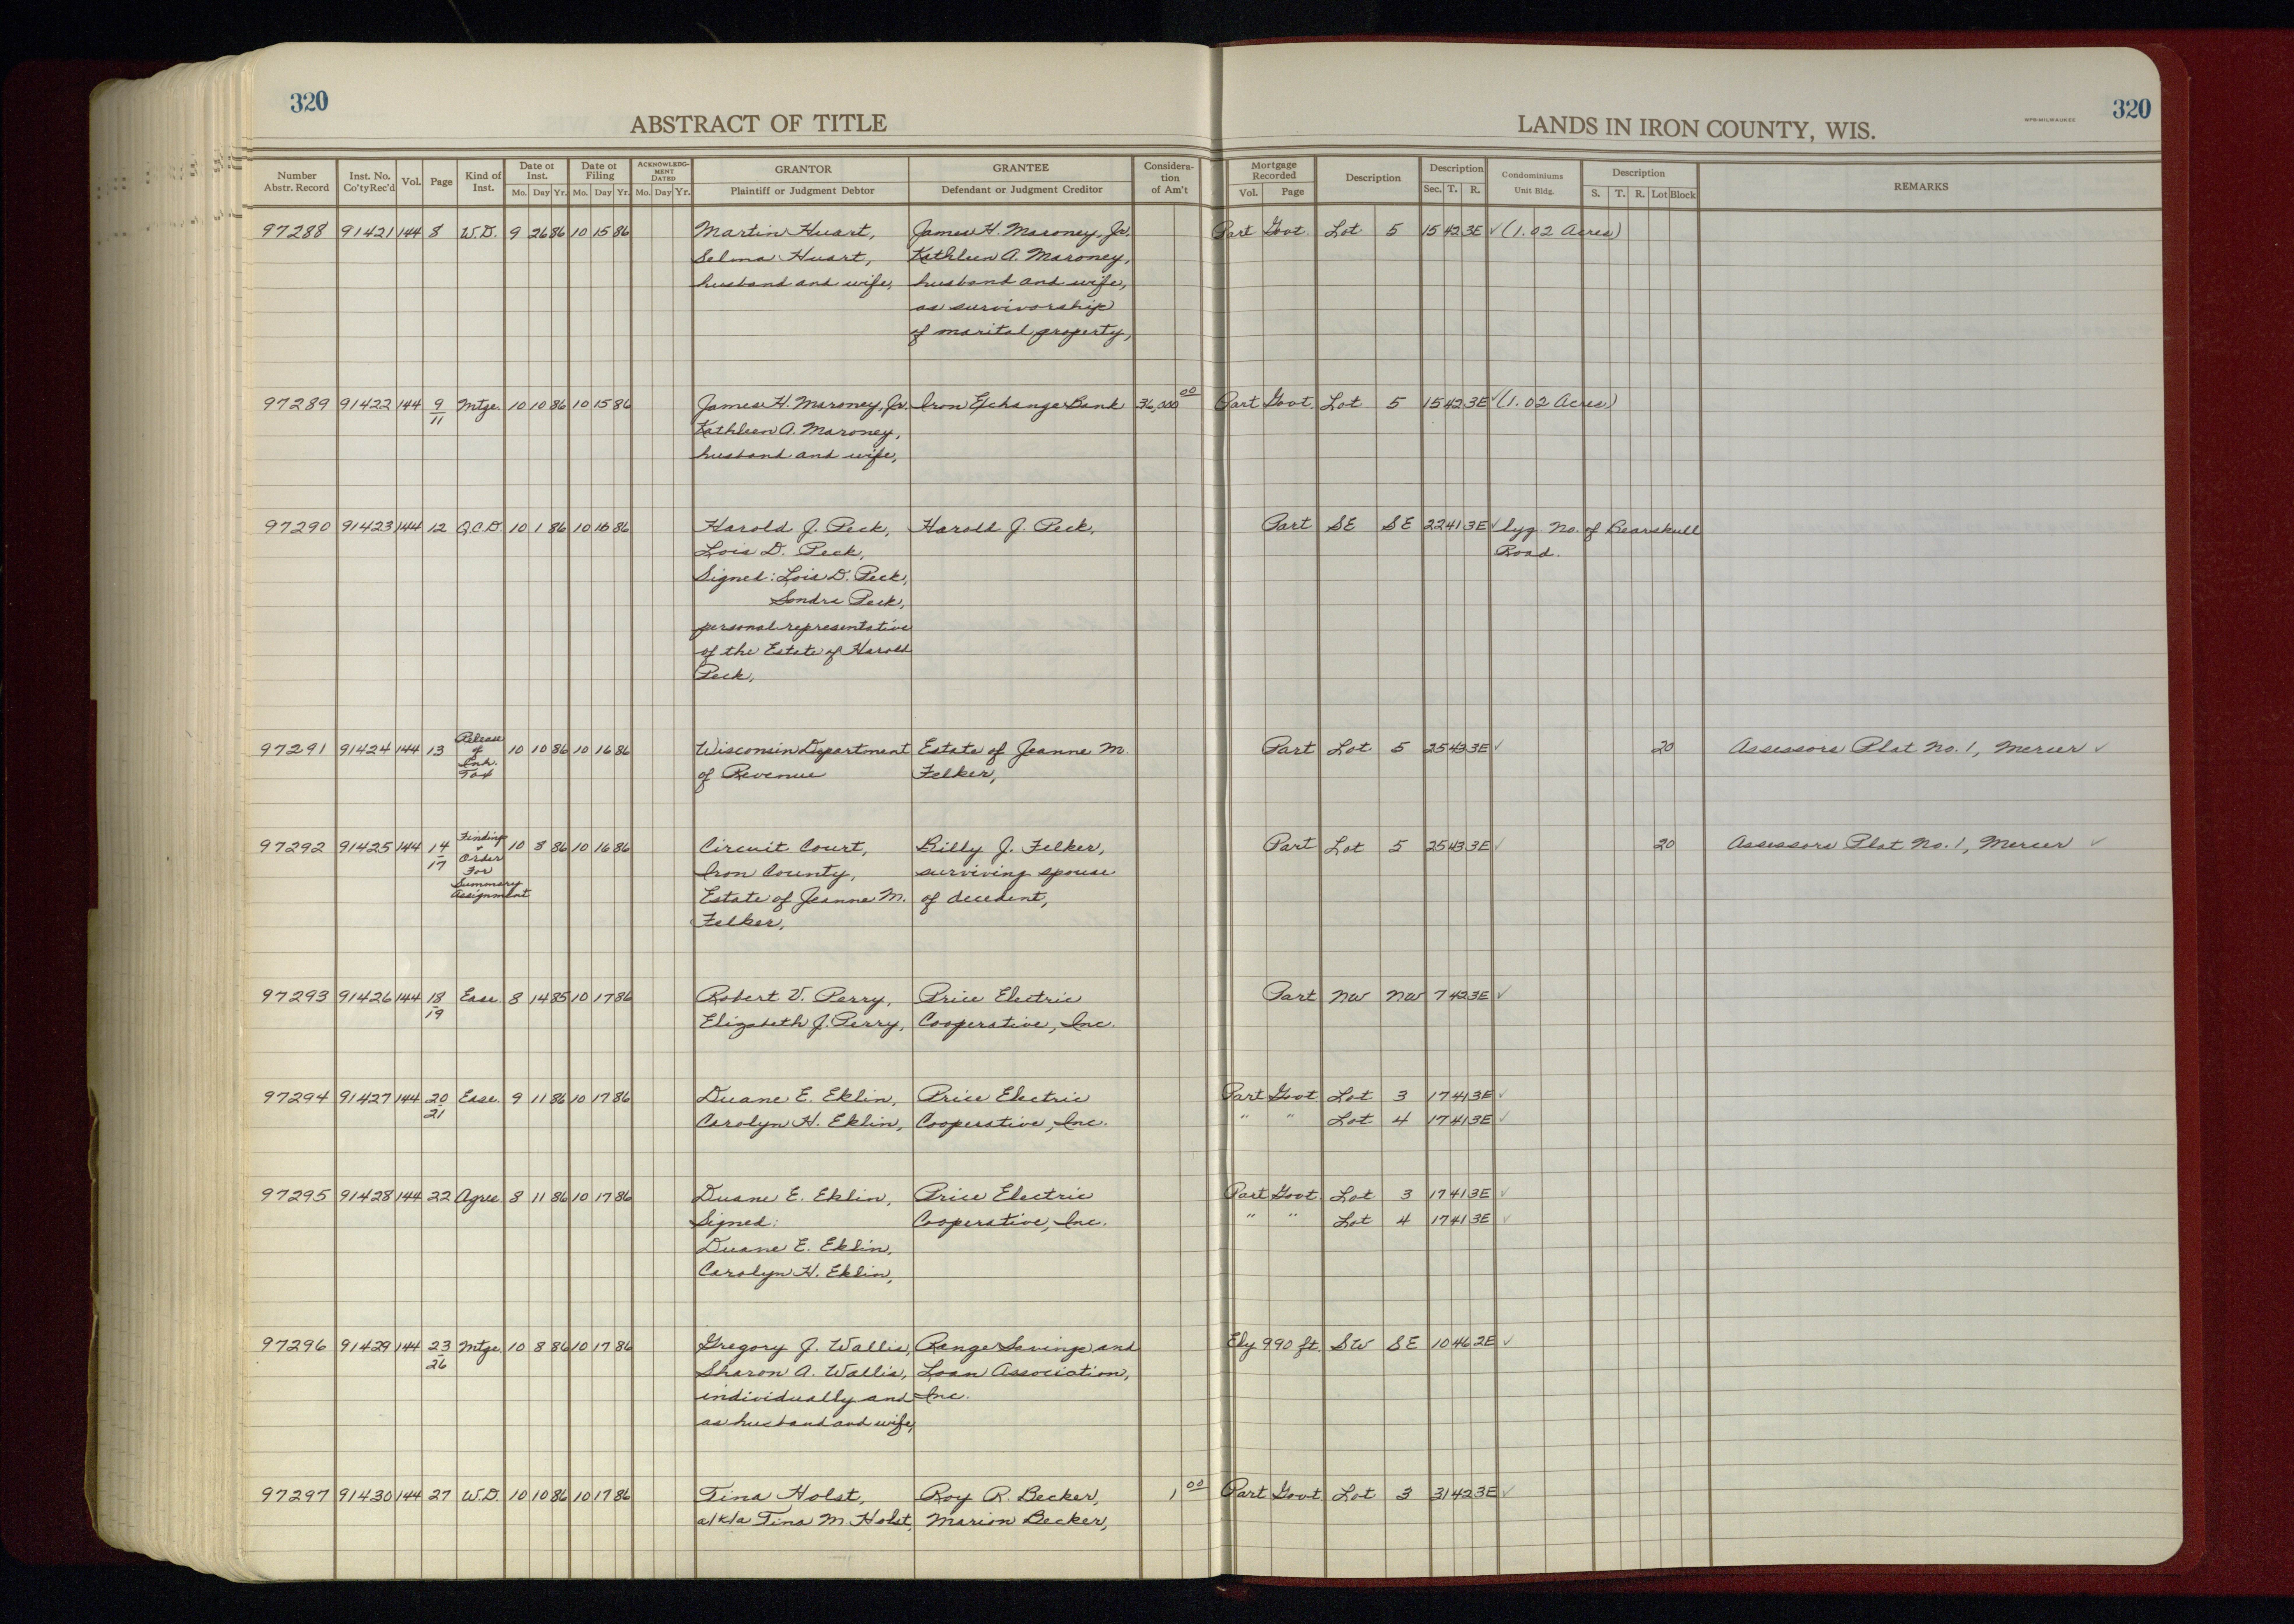 320
ABSTRACT OF TITLE
LANDS IN IRON COUNTY, WIS.
WPB-MILWAUKEE
320
Number Abstr. Record | Inst. No. Co'ty Rec'd | Vol. | Page | Kind of Inst. | Date of Inst. Mo. Day Yr. | Date of Filing Mo. Day Yr. | ACKNOWLEDGMENT DATED Mo. Day Yr. | GRANTOR Plaintiff or Judgment Debtor | GRANTEE Defendant or Judgment Creditor | Consideration of Am't | Mortgage Recorded Vol. Page | Description | Description Sec. T. R. | Condominiums Unit Bldg. | Description S. T. R. Lot Block | REMARKS
97288 91421 144 8 W.D. 9 26 86 10 15 86 Martin Huart, James H. Maroney, Jr. Part Govt. Lot 5 15 42 3E ✓ (1.02 Acres)
Selma Huart, Kathleen A. Maroney,
husband and wife, husband and wife,
as survivorship
of marital property,
97289 91422 144 9/11 Mtge. 10 10 86 10 15 86 James H. Maroney, Jr. Iron Exchange Bank 36,000 00 Part Govt. Lot 5 15 42 3E ✓ (1.02 Acres)
Kathleen A. Maroney,
husband and wife,
97290 91423 144 12 Q.C.D. 10 1 86 10 16 86 Harold J. Peck, Harold J. Peck, Part SE SE 22 41 3E ✓ lyg. No. of Bearskull
Lois D. Peck, Road.
Signed: Lois D. Peck,
Sondra Peck,
personal representative
of the Estate of Harold
Peck,
97291 91424 144 13 Release of Inh. Tax 10 10 86 10 16 86 Wisconsin Department Estate of Jeanne M. Part Lot 5 25 43 3E ✓ 20 Assessors Plat No. 1, Mercer ✓
of Revenue Felker,
97292 91425 144 14/17 Finding + Order For Summary Assignment 10 8 86 10 16 86 Circuit Court, Billy J. Felker, Part Lot 5 25 43 3E ✓ 20 Assessors Plat No. 1, Mercer ✓
Iron County, surviving spouse
Estate of Jeanne M. of decedent,
Felker,
97293 91426 144 18/19 Ease. 8 14 85 10 17 86 Robert V. Perry, Price Electric Part NW NW 7 42 3E ✓
Elizabeth J. Perry, Cooperative, Inc.
97294 91427 144 20/21 Ease. 9 11 86 10 17 86 Duane E. Eklin, Price Electric Part Govt Lot 3 17 41 3E ✓
Carolyn H. Eklin, Cooperative, Inc. " " Lot 4 17 41 3E ✓
97295 91428 144 22 Agree 8 11 86 10 17 86 Duane E. Eklin, Price Electric Part Govt Lot 3 17 41 3E ✓
Signed: Cooperative, Inc. " " Lot 4 17 41 3E ✓
Duane E. Eklin,
Carolyn H. Eklin,
97296 91429 144 23/26 Mtge. 10 8 86 10 17 86 Gregory J. Wallis, Range Savings and Ely 990 ft. SW SE 10 46 2E ✓
Sharon A. Wallis, Loan Association,
individually and Inc.
as husband and wife,
97297 91430 144 27 W.D. 10 10 86 10 17 86 Tina Holst, Roy R. Becker, 1 00 Part Govt Lot 3 31 42 3E ✓
a/k/a Tina M. Holst, Marion Becker,